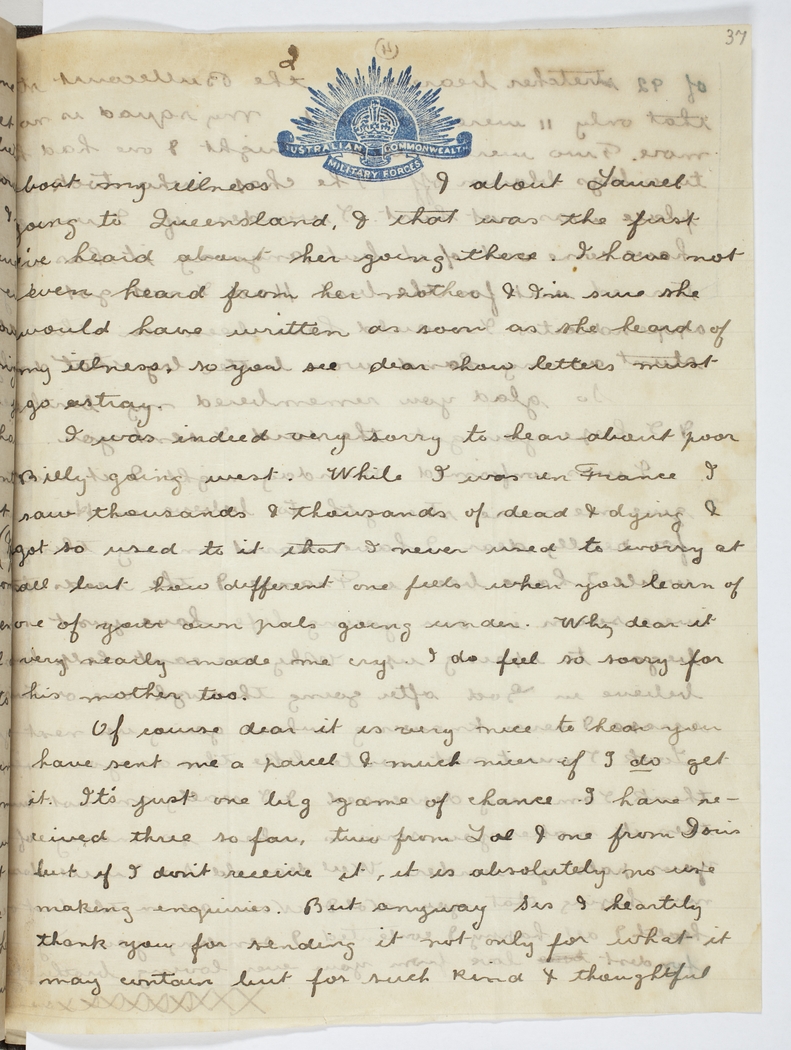 37
(11)
2
AUSTRALIAN COMMONWEALTH
MILITARY FORCES
bout my illness & about Laurel
going to Queensland, & that was the first
I've heard about her going there. I have not
even heard from her mother & I'm sure she
would have written as soon as she heard of
my illness, so you see dear how letters must
go astray.
I was indeed very sorry to hear about poor
Billy going west. While I was in France I
saw thousands & thousands of dead & dying &
got so used to it that I never used to worry at
all but how different one feels when you learn of
one of your own pals going under. Why dear it
very nearly made me cry & I do feel so sorry for
his mother too.
Of course dear it is very nice to hear you
have sent me a parcel & much nicer if I do get
it. It's just one big game of chance. I have re-
ceived three so far, two from & one from Doris
but if I don't receive it, it is absolutely no use
making enquiries. But anyway Sis I heartily
thank you for sending it not only for what it
may contain but for such kind & thoughtful